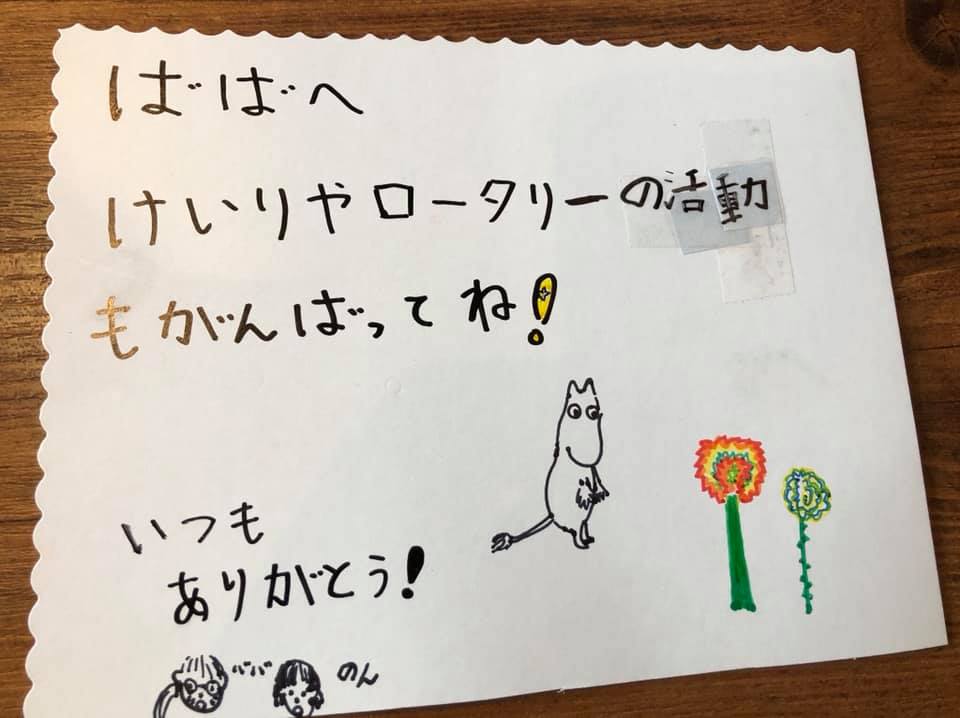 ばばへ
けいりやロータリーの活動
もがんばってね!
いつも
ありがとう!
ばば のん